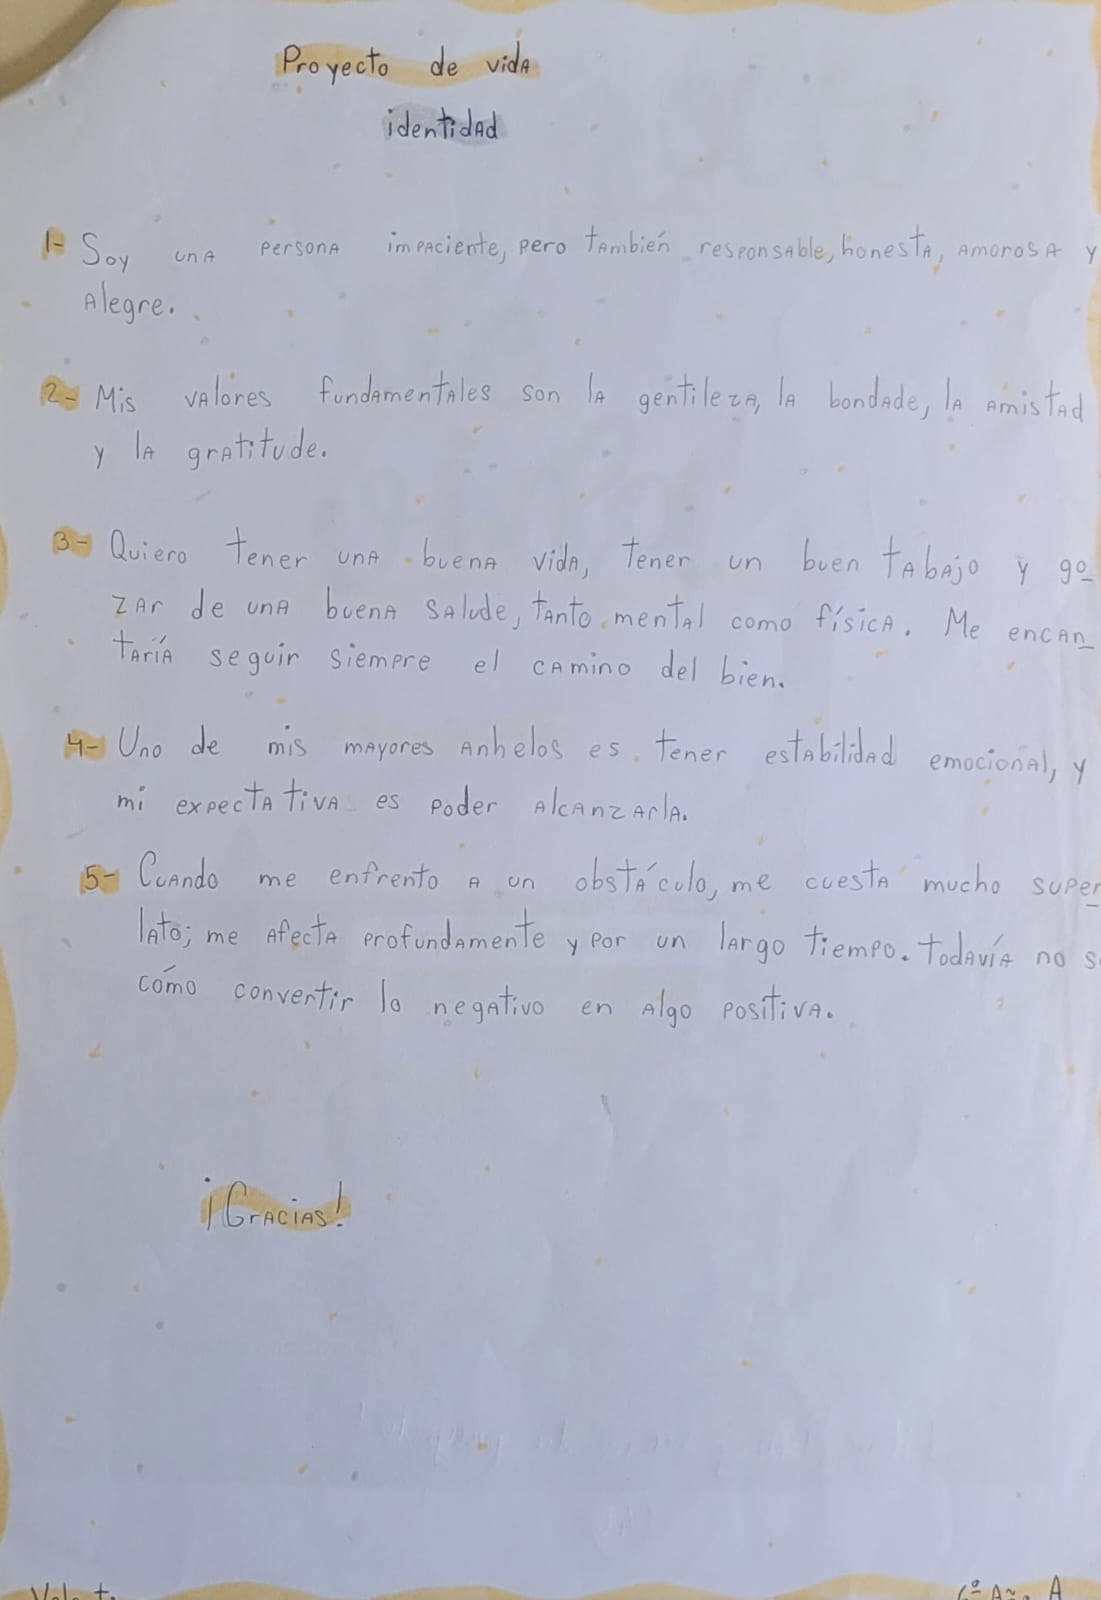 Proyecto de vida
identidad
1- Soy una persona impaciente, pero también responsable, honesta, amorosa y
alegre.
2- Mis valores fundamentales son la gentileza, la bondade, la amistad
y la gratitude.
3- Quiero tener una buena vida, tener un buen tabajo y go
zar de una buena salude, tanto mental como física. Me encan
taría seguir siempre el camino del bien.
4- Uno de mis mayores anhelos es tener estabilidad emocional, y
mi expectativa es poder alcanzarla.
5- Cuando me enfrento a un obstáculo, me cuesta mucho super
lato; me afecta profundamente y por un largo tiempo. Todavía no
cómo convertir lo negativo en algo positiva.
¡Gracias!
6º A